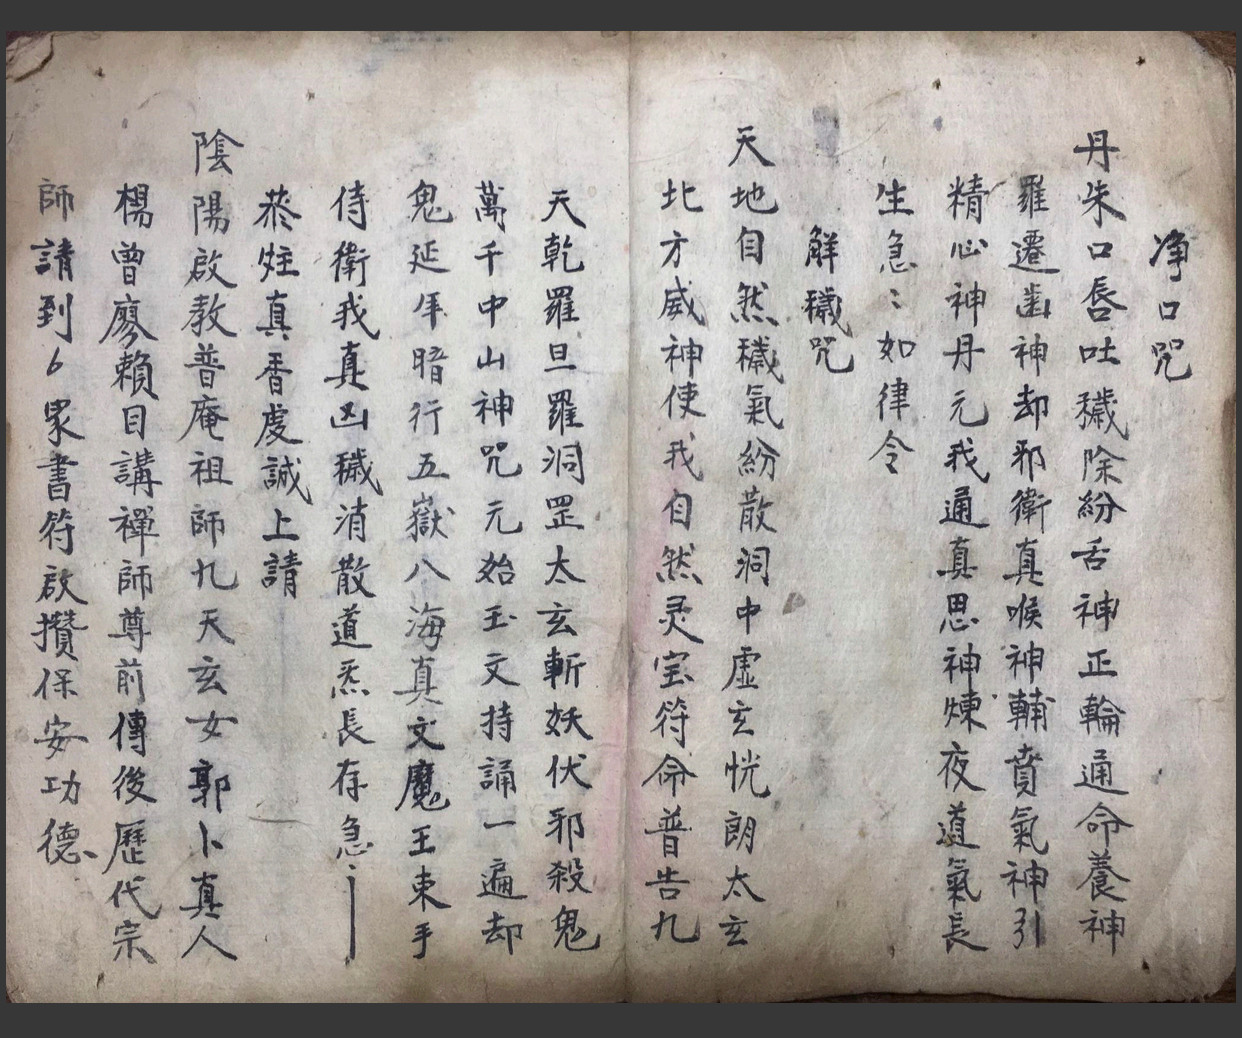 净口咒
丹朱口唇吐穢除紛舌神正輪通命養神
羅遷齒神却邪衛真喉神輔賁氣神引
精心神丹元我通真思神煉夜道氣長
生急〻如律令
解穢咒
天地自然穢氣紛散洞中虛玄恍朗太玄
北方威神使我自然灵宝符命普告九
天乾羅旦羅洞罡太玄斬妖伏邪殺鬼
萬千中山神咒元始玉文持誦一遍却
鬼延年暗行五嶽八海真文魔王束手
侍衛我真凶穢消散道炁長存急〻
恭炷真香虔誠上請
陰陽啟教普庵祖師九天玄女郭卜真人
楊曾廖賴目講禪師尊前傳後歷代宗
師請到家書符啟攢保安功德